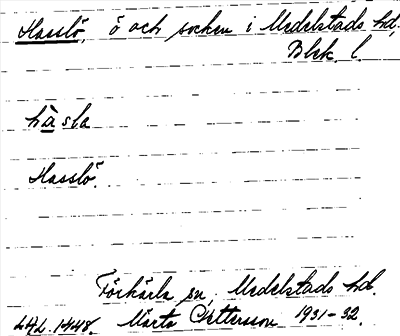 Hasslö, ö och socken i Medelstads hd,
Blek. l.
hàsla
Hasslö.
Förkärla sn, Medelstads hd.
Märta Pettersson 1931-32.